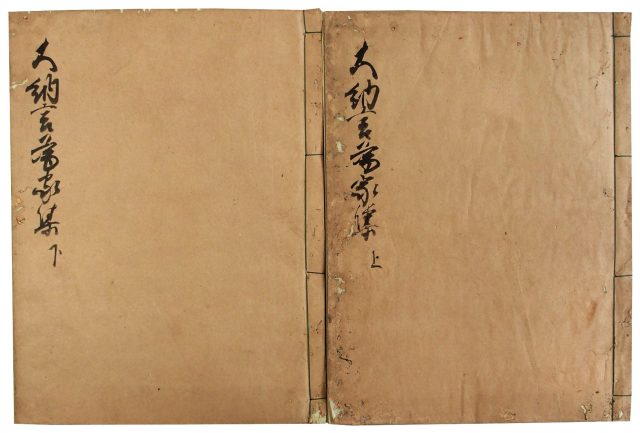 大納言為家集 上
大納言為家集 下